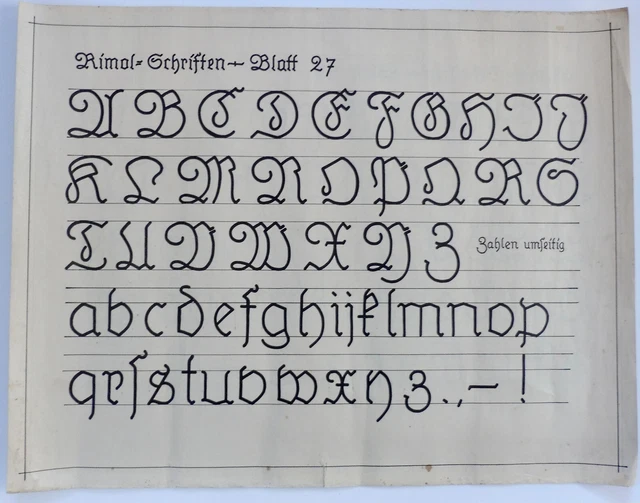 Rimol-Schriften - Blatt 27
A B C D E F G H I J
K L M N O P Q R S
T U V W X Y Z Zahlen umseitig
a b c d e f g h i j k l m n o p
q r ſ s t u v w x y z . , – !